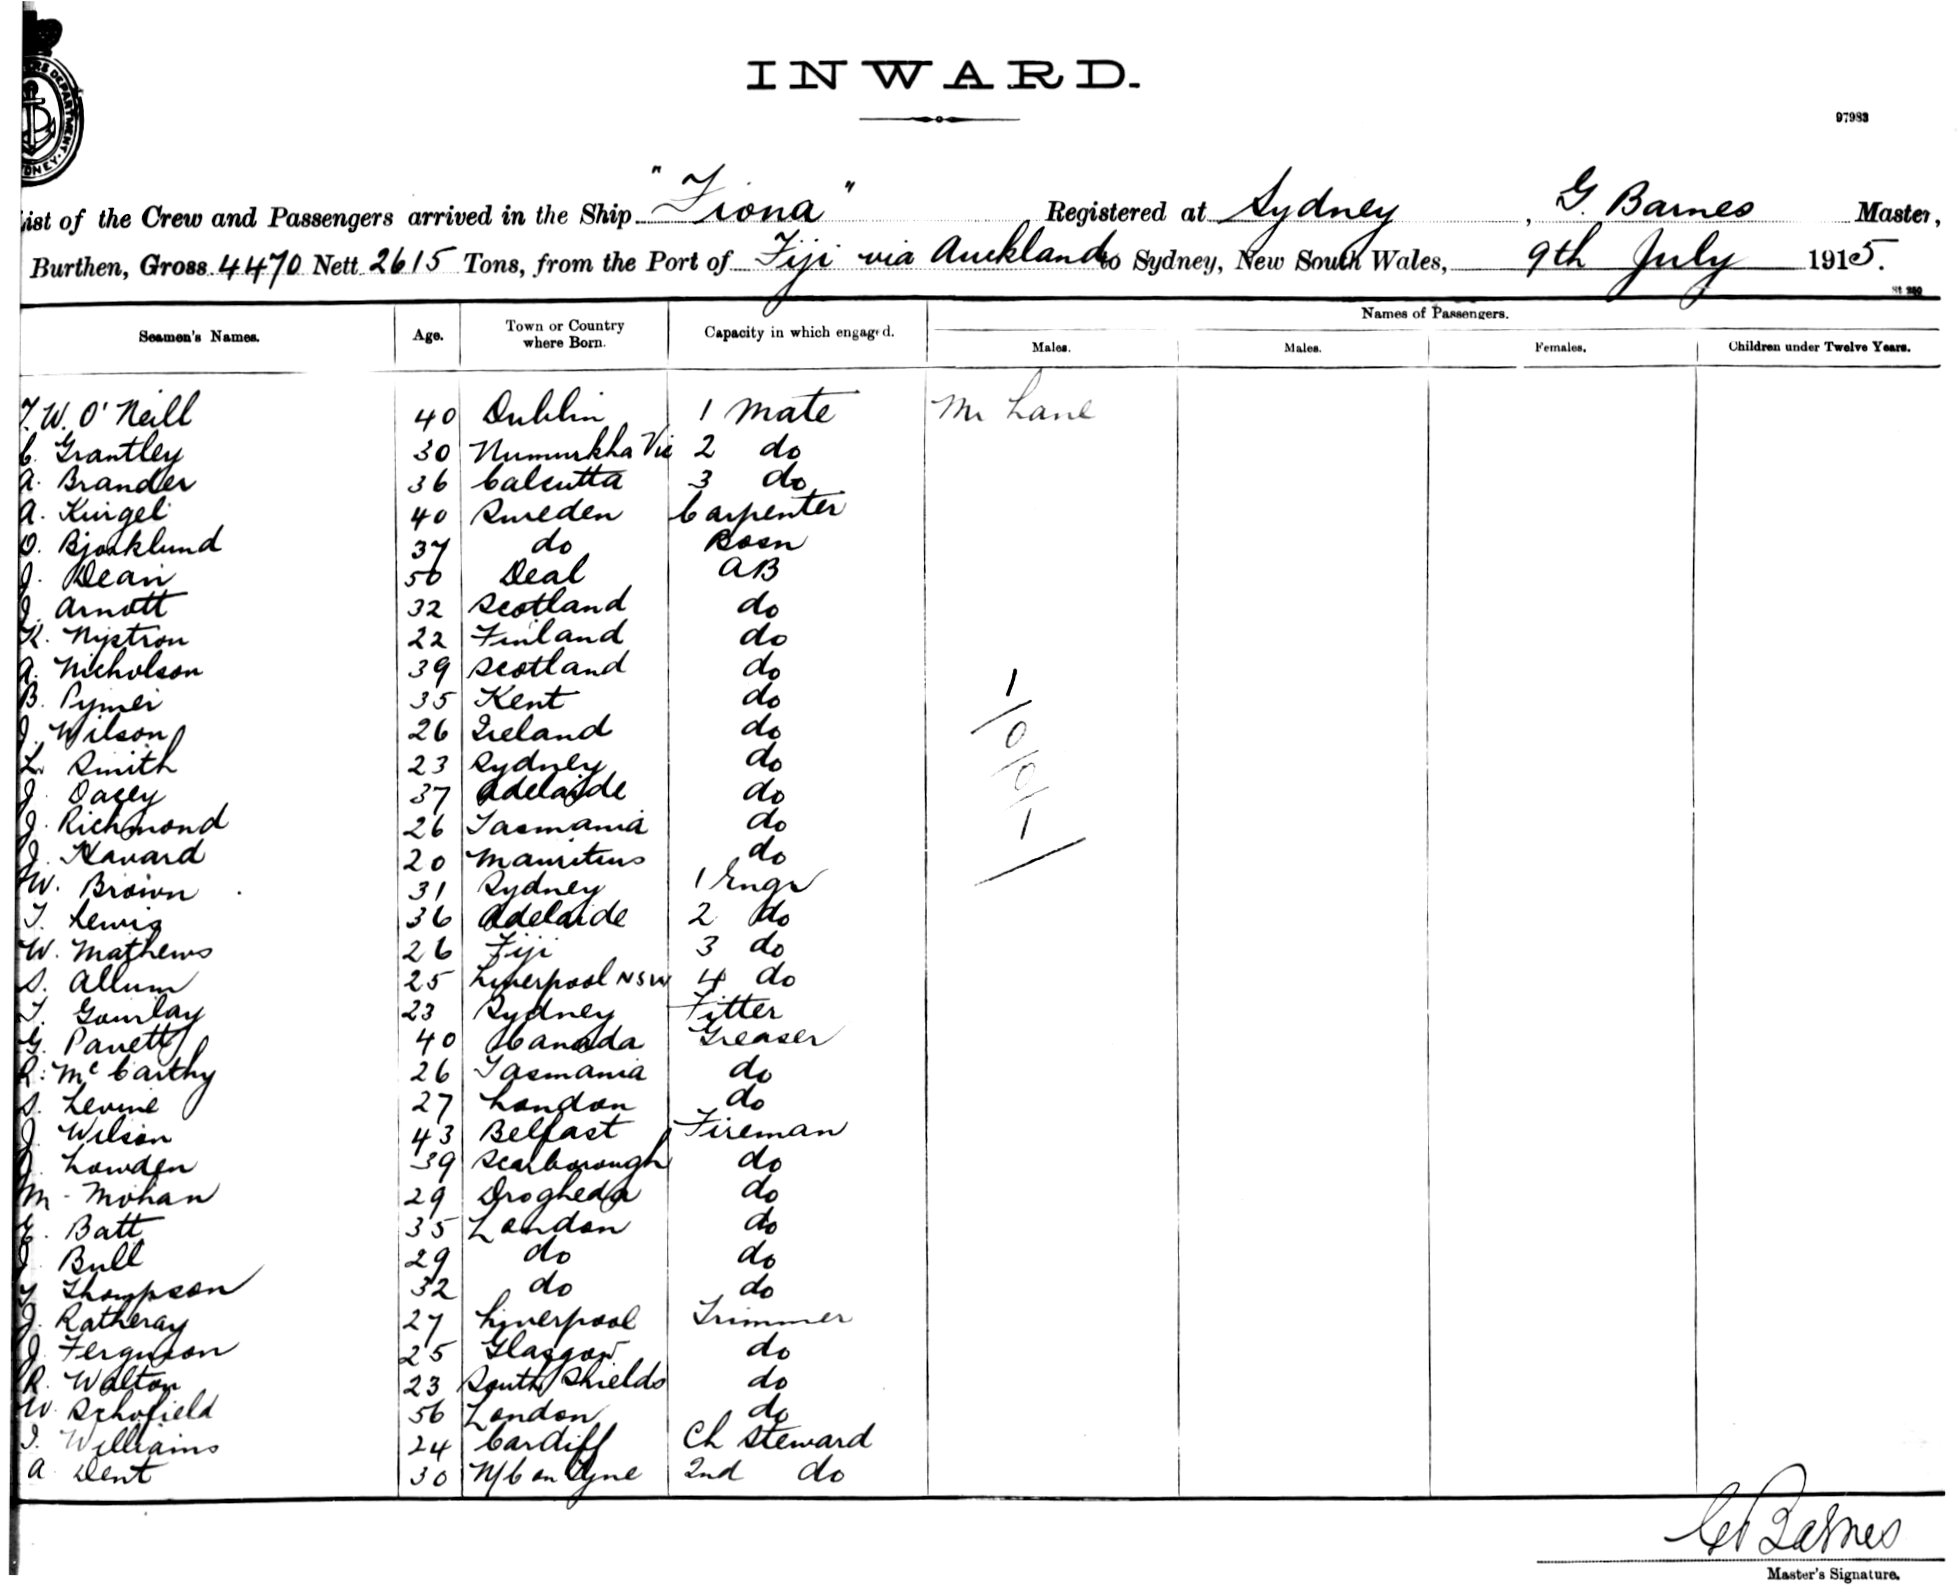 INWARD.
97983
ist of the Crew and Passengers arrived in the Ship "Fiona" Registered at Sydney, G. Barnes Master,
Burthen, Gross 4470 Nett 2615 Tons, from the Port of Fiji via Auckland to Sydney, New South Wales, 9th July 1915.
Seamen's Names. Age. Town or Country where Born. Capacity in which engaged. Names of Passengers.
Males. Males. Females. Children under Twelve Years.
T. W. O'Neill 40 Dublin 1 Mate Mr Lane
C. Grantley 30 Numurkha Vic 2 do
A. Brander 36 Calcutta 3 do
A. Kingel 40 Sweden Carpenter
O. Bjorklund 37 do Bosn
J. Dean 50 Deal AB
J. Arnott 32 Scotland do
K. Nystron 22 Finland do
A. Nicholson 39 Scotland do
B. Pymer 35 Kent do
J. Wilson 26 Ireland do
L. Smith 23 Sydney do
J. Dacey 37 Adelaide do
J. Richmond 26 Tasmania do
J. Havard 20 Mauritius do
W. Brown 31 Sydney 1 Engr
T. Lewis 36 Adelaide 2 do
W. Mathews 26 Fiji 3 do
S. Allum 25 Liverpool NSW 4 do
T. Gourlay 23 Sydney Fitter
G. Panett 40 Canada Greaser
R. McCarthy 26 Tasmania do
S. Levine 27 London do
J. Wilson 43 Belfast Fireman
J. Lowden 39 Scarborough do
M. Mohan 29 Drogheda do
E. Batt 35 London do
J. Bull 29 do do
Thompson 32 do do
J. Ratheray 27 Liverpool Trimmer
J. Ferguson 25 Glasgow do
R. Walton 23 South Shields do
W. Schofield 56 London do
T. Williams 24 Cardiff Ch Steward
A. Dent 30 N/C on Tyne 2nd do
1/0/0/0/1
G Barnes
Master's Signature.